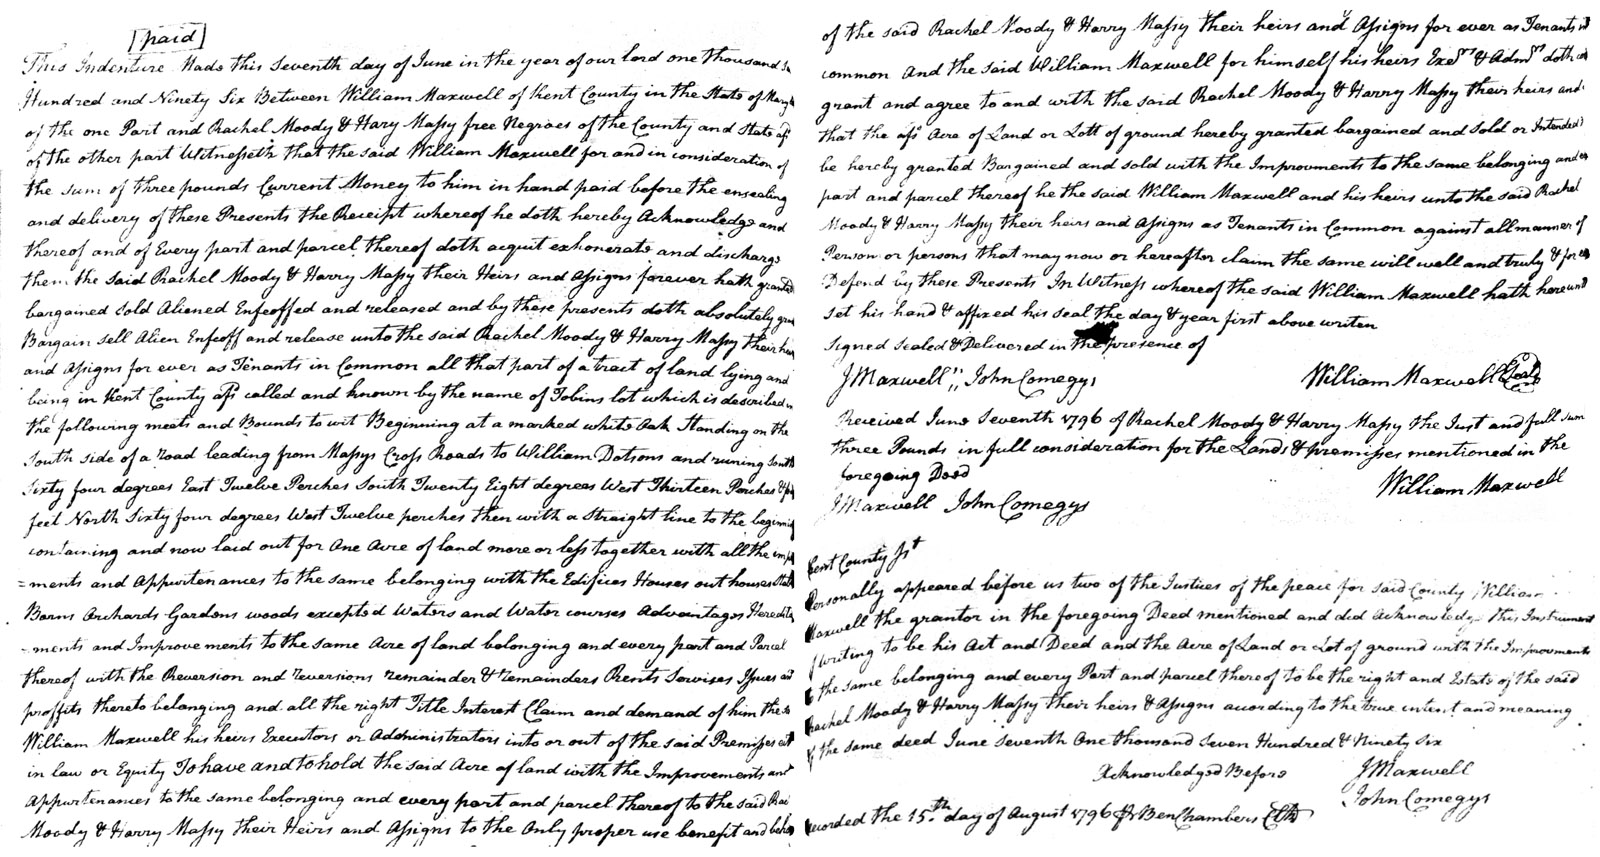 [paid]
This Indenture Made this Seventh day of June in the year of our lord one thousand
Hundred and Ninety Six Between William Maxwell of Kent County in the State of
of the one Part and Rachel Moody & Hary Massy free Negroes of the County and State afs
of the other part Witnesseth that the said William Maxwell for and in consideration of
the sum of three pounds Current Money to him in hand paid before the ensealing
and delivery of these Presents the Receipt whereof he doth hereby Acknowledge and
thereof and of Every part and parcel thereof doth acquit exhonerate and discharge
them the said Rachel Moody & Harry Massy their Heirs and Assigns forever hath granted
bargained Sold Aliened Enfeoffed and released and by these presents doth absolutely
Bargain sell Alien Enfeoff and release unto the said Rachel Moody & Harry Massy their
and Assigns for ever as Tenants in Common all that part of a tract of land lying and
being in Kent County afs called and known by the name of Tobins lot which is described
the following meets and Bounds to wit Beginning at a marked white Oak Standing on the
South side of a road leading from Massys Cross Roads to William Dotsons and runing South
Sixty four degrees East Twelve Perches South Twenty Eight degrees West Thirteen Perches &
feet North Sixty four degrees West Twelve perches then with a Straight line to the
containing and now laid out for One Acre of land more or less together with all the
=ments and Appurtenances to the same belonging with the Edifices Houses out houses
Barns Orchards Gardens woods excepted Waters and Water courses Advantages
=ments and Improvements to the same Acre of land belonging and every part and Parcel
thereof with the Reversion and reversions remainder & remainders Rents Servises Issues
proffits thereto belonging and all the right Title Interest Claim and demand of him the
William Maxwell his heirs Executors or Administrators into or out of the said Premisses
in law or Equity To have and to hold the said Acre of land with the Improvements and
Appurtenances to the same belonging and every part and parcel thereof to the said
Moody & Harry Massy their Heirs and Assigns to the Only proper use benefit and
of the said Rachel Moody & Harry Massy their heirs and Assigns for ever as Tenants in
common And the said William Maxwell for himself his heirs Exers & Admrs doth
grant and agree to and with the said Rachel Moody & Harry Massy their heirs and
that the afs Acre of Land or Lott of ground hereby granted bargained and sold or Intended
be hereby granted Bargained and sold with the Improvments to the same belonging and
part and parcel thereof he the said William Maxwell and his heirs unto the said Rachel
Moody & Harry Massy their heirs and Assigns as Tenants in Common against all manner of
Person or persons that may now or hereafter claim the same will well and truly &
Defend by these Presents In Witness whereof the said William Maxwell hath
set his hand & affixed his seal the day & year first above writen
Signed Sealed & Delivered in the presence of
J Maxwell ,, John Comegys William Maxwell Seal
Received June Seventh 1796 of Rachel Moody & Harry Massy the Just and full sum
three Pounds in full consideration for the Lands & premisses mentioned in the
foregoing Deed
William Maxwell
J Maxwell John Comegys
Kent County Sst
Personally appeared before us two of the Justices of the peace for said County William
Maxwell the grantor in the foregoing Deed mentioned and did Acknowledge this Instrument
of writing to be his Act and Deed and the Acre of Land or Lot of ground with the Improvments
the same belonging and every Part and parcel thereof to be the right and Estate of the said
Rachel Moody & Harry Massy their heirs & Assigns acording to the true intent and meaning
of the same deed June Seventh One thousand Seven Hundred & Ninety Six
Acknowledged Before J Maxwell
John Comegys
Recorded the 15th day of August 1796 Pr Ben Chambers Clk